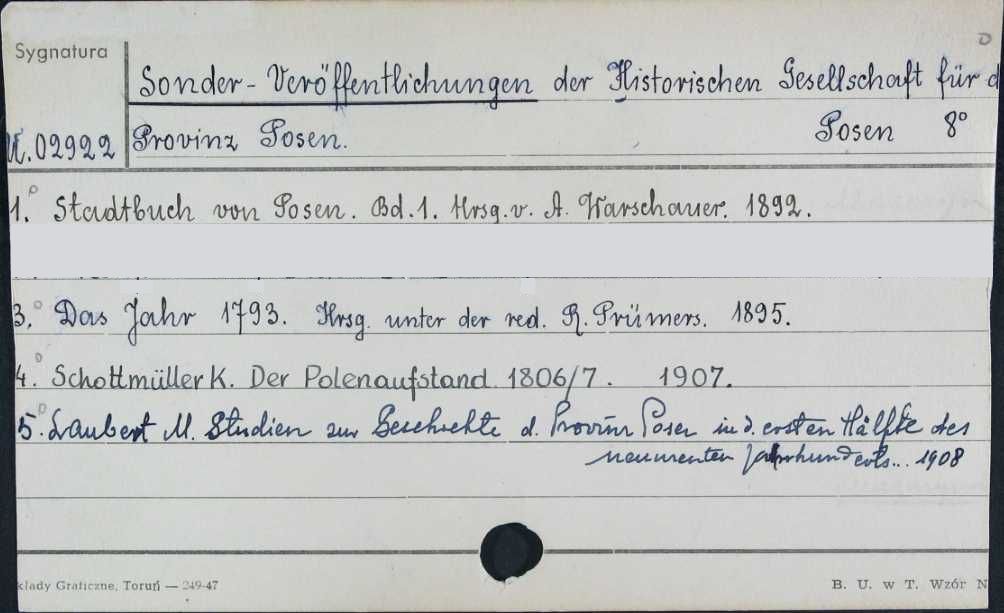 Sygnatura
Sonder-Veröffentlichungen der Historischen Gesellschaft für d
02922 Provinz Posen. Posen 8°
1. Stadtbuch von Posen. Bd.1. Hrsg.v. A. Warschauer. 1892.
3. Das Jahr 1793. Hrsg. unter der red. R. Prümers. 1895.
4. Schottmüller K. Der Polenaufstand 1806/7. 1907.
5. Laubert M. Studien zur Geschichte d. Provinz Posen in d. ersten Hälfte des
neunzenten Jahrhunderts... 1908
kłady Graficzne, Toruń — 249-47
B. U. w T. Wzór N